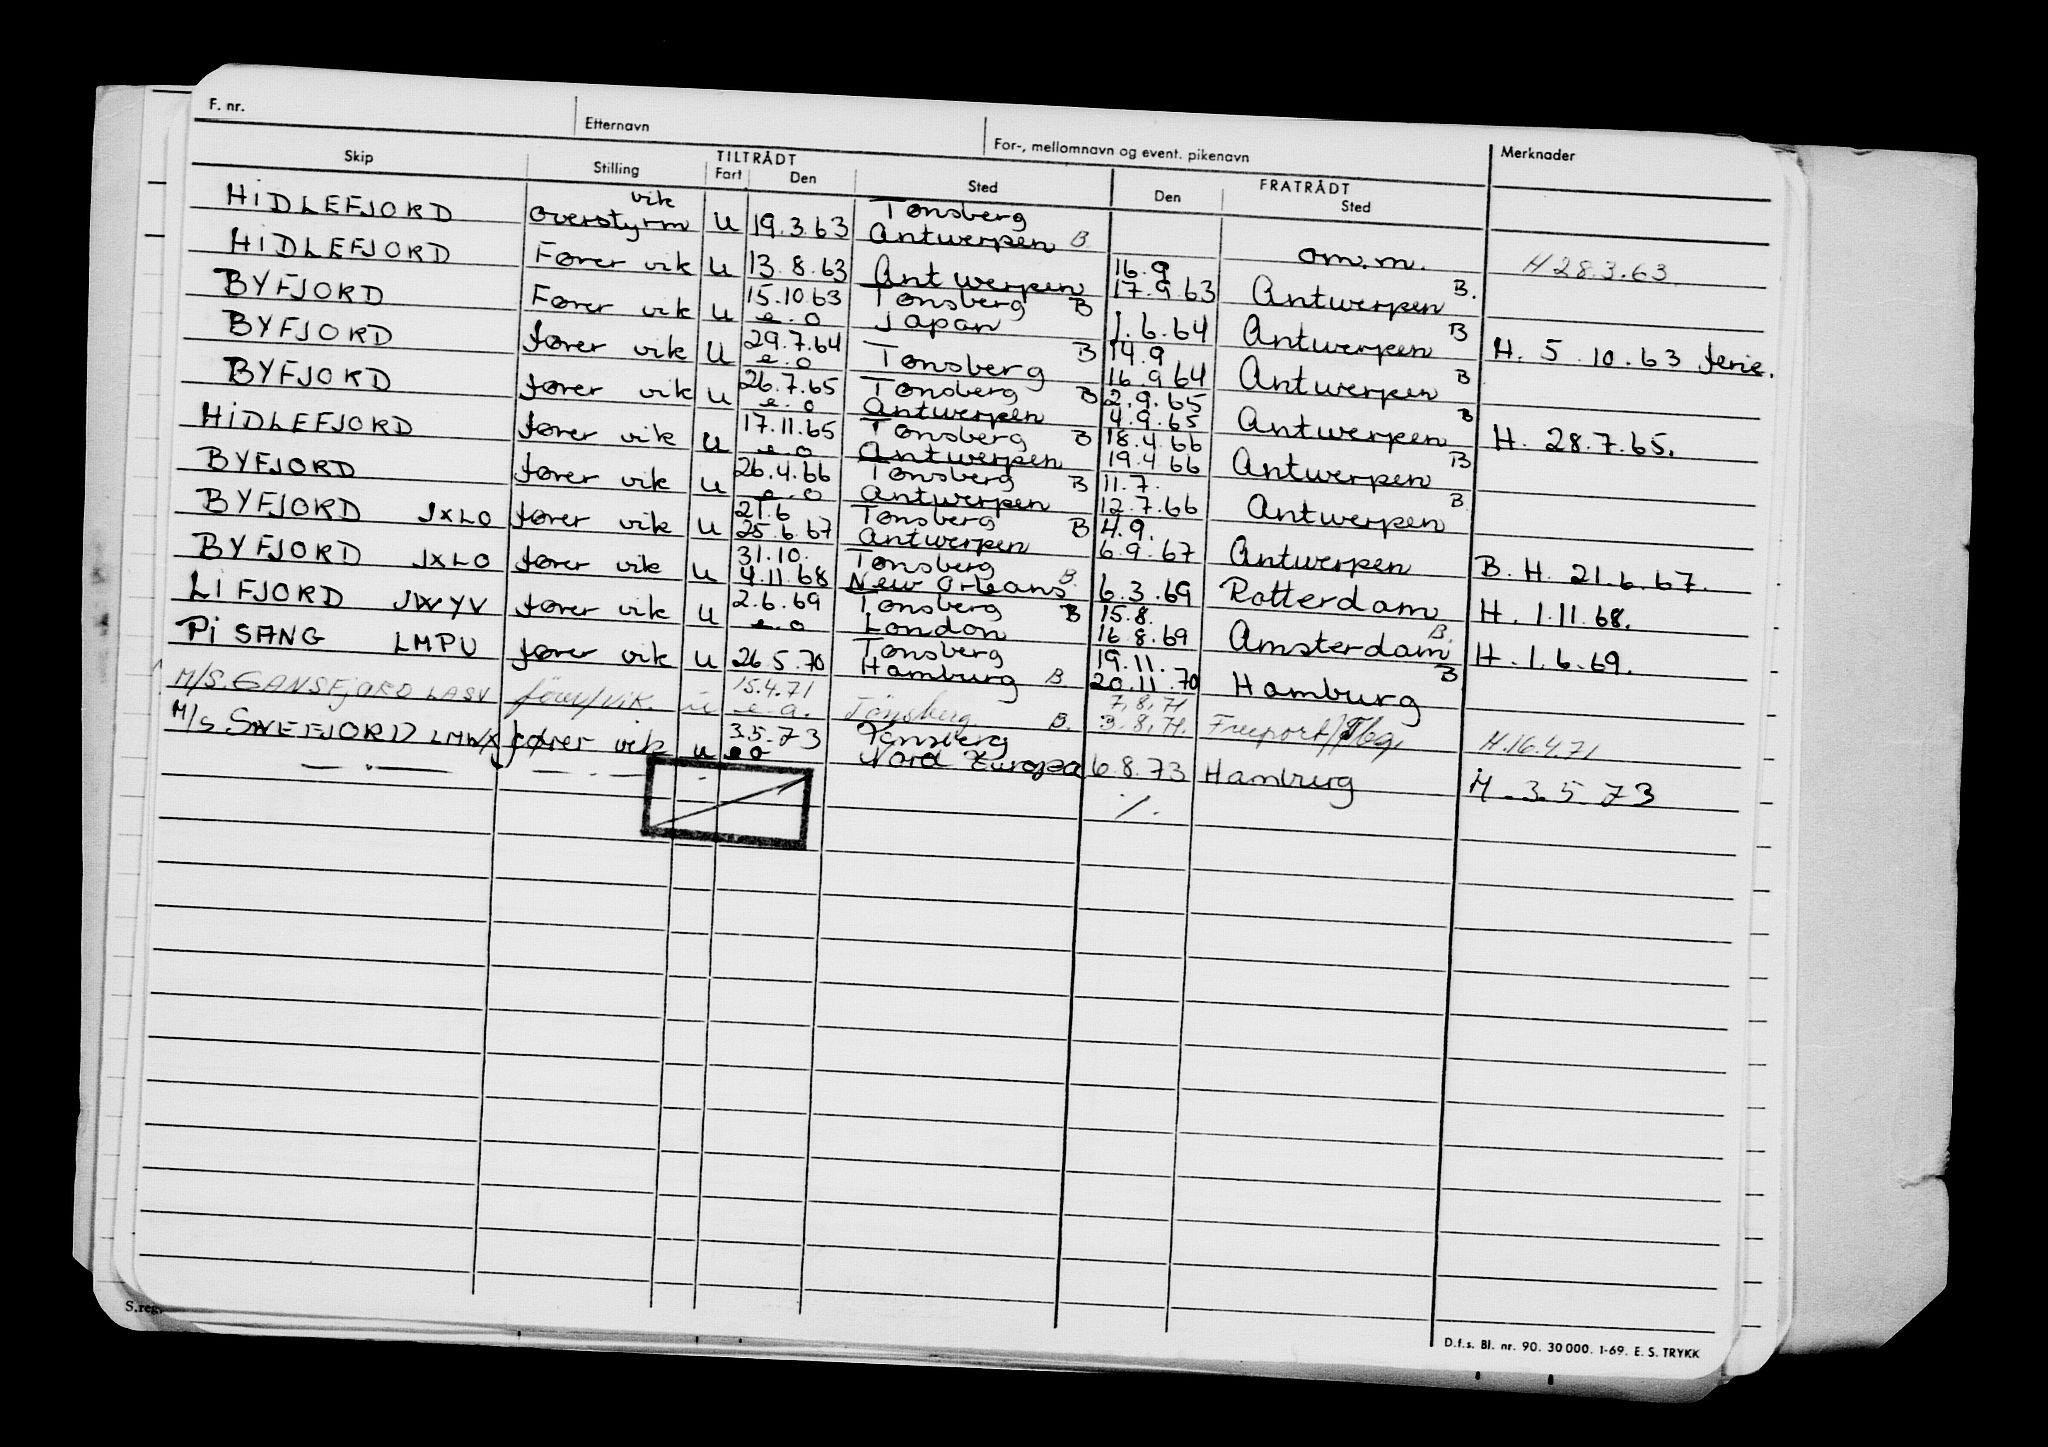 F. nr. Etternavn For-, mellomnavn og event. pikenavn Merknader
Skip Stilling TILTRÅDT Fart Den Sted FRATRÅDT Den Sted
HIDLEFJORD overstyrm vik U 19.3.63 Tønsberg Antwerpen B om.m. H 28.3.63
HIDLEFJORD Fører vik U 13.8.63 Antwerpen 16.9 17.9.63 Antwerpen B.
BYFJORD Fører vik U 15.10.63 e.o Tønsberg Japan B 1.6.64 Antwerpen B H. 5.10.63 ferie.
BYFJORD fører vik U 29.7.64 e.o Tønsberg B 14.9 16.9 64 Antwerpen B
BYFJORD fører vik U 26.7.65 e.o Tønsberg Antwerpen B 2.9.65 4.9.65 Antwerpen B H. 28.7.65.
HIDLEFJORD fører vik U 17.11.65 e.o Tønsberg Antwerpen B 18.4.66 19.4.66 Antwerpen B
BYFJORD fører vik U 26.4.66 e.o Tønsberg Antwerpen B 11.7. 12.7.66 Antwerpen B
BYFJORD JXLO fører vik U 21.6 25.6.67 Tønsberg Antwerpen B 4.9. 6.9.67 Antwerpen B.H. 21.6.67.
BYFJORD JXLO fører vik U 31.10. 4.11.68 Tønsberg New Orleans B. 6.3.69 Rotterdam H. 1.11.68.
LIFJORD JWYV fører vik U 2.6.69 e.o Tønsberg London B 15.8. 16.8.69 Amsterdam B. H. 1.6.69.
PISANG LMPU fører vik U 26.5.70 Tønsberg Hamburg B 19.11. 20.11.70 Hamburg B
M/S. GANSFJORD LASV fører/vik. u 15.4.71 e.o. Tønsberg B. 7.8.71 3.8.71. Freeport/Tbg. H.16.4.71
M/S SNEFJORD LMWX fører vik u 3.5.73 eo Tønsberg Nord Europa 6.8.73 Hamburg H. 3.5.73
— . — — . — - ./.
S.reg.
D.f.s. Bl. nr. 90. 30 000. 1-69. E. S. TRYKK